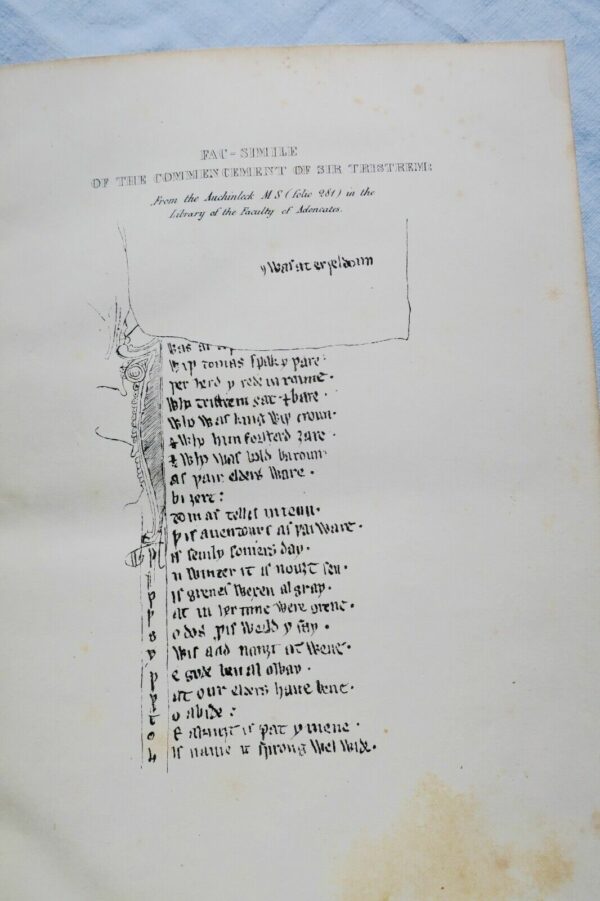 FAC-SIMILE
OF THE COMMENCEMENT OF SIR TRISTREM:
From the Auchinleck M S (folio 281) in the
Library of the Faculty of Advocates.
y was at erȝeldoun
was at
wiþ tomas spak y þare·
þer herd y rede in roune·
who tristrem gat ⁊ bare·
who was king wiþ croun·
⁊ who him fosterd ȝare·
⁊ who was bold baroun·
as þair elders ware·
bi ȝere:
tomas telles in toun·
þis auentours as þai ware·
þ is semly somers day·
i n winter it is nouȝt sen·
þ is greues wexen al gray·
þ at in her time were grene·
s o dos þis world y say·
y wis and nouȝt at wene·
þ e gode ben al oway·
þ at our elders haue bene·
t o abide:
o f a kniȝt is þat y mene·
h is name it sprong wel wide·